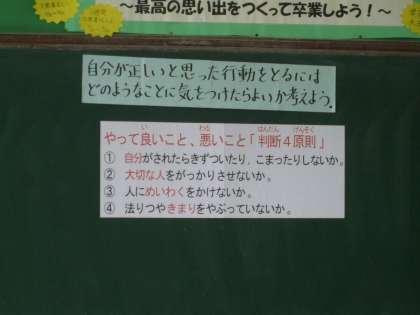 ～最高の思い出をつくって卒業しよう！～
自分が正しいと思った行動をとるには
どのようなことに気をつけたらよいか考えよう。
やって良いこと、悪いこと「判断４原則」
① 自分がされたらきずついたり、こまったりしないか。
② 大切な人をがっかりさせないか。
③ 人にめいわくをかけないか。
④ 法りつやきまりをやぶっていないか。